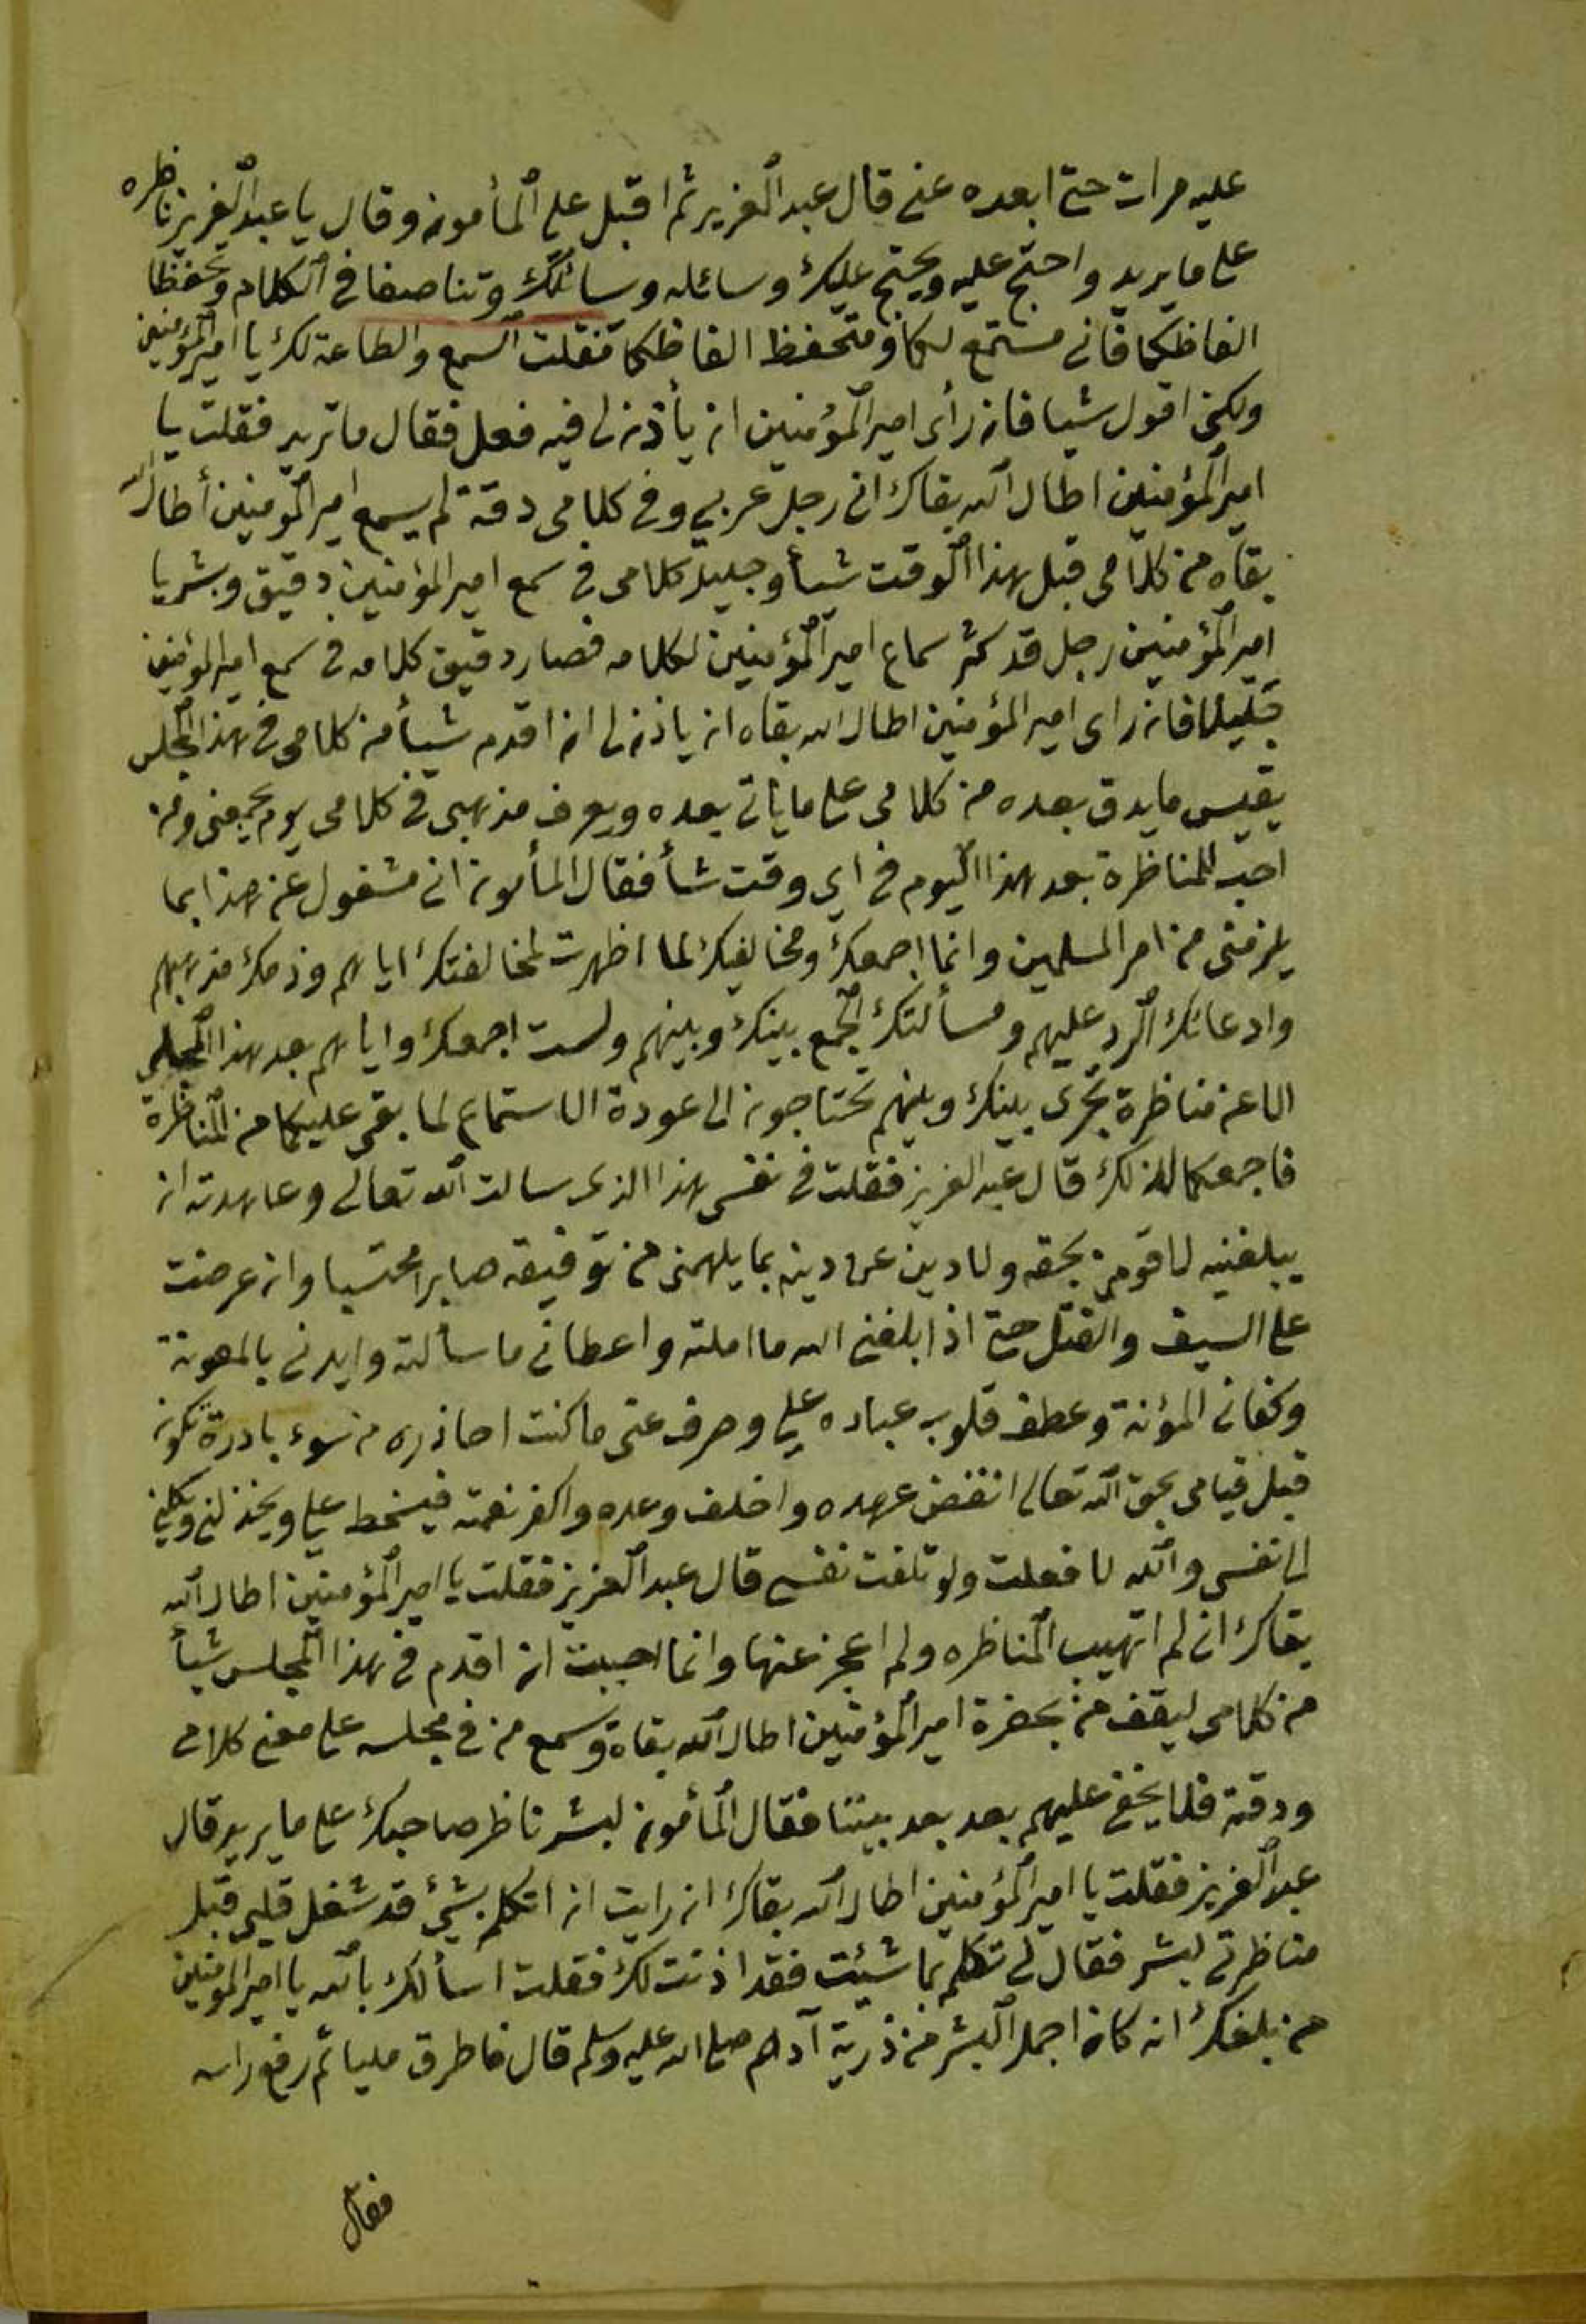 عليه مرات حتى ابعده عني قال عبد العزيز ثم اقبل علي المأمون وقال يا عبد العزيز ناظره
على ما يريد واحتج عليه ويحتج عليك وسائله وسائلك وتناصفا في الكلام وتحفظا
الفاظكما فاني مستمع لكما ومتحفظ الفاظكما فقلت السمع والطاعة لك يا امير المؤمنين
ولكني اقول شيا فان رأى امير المؤمنين ان يأذن لي فيه فعل فقال ما تريد فقلت يا
امير المؤمنين اطال الله بقاك اني رجل عربي وفي كلامي دقة لم يسمع امير المؤمنين أطال الله
بقاه من كلامي قبل هذا الوقت شيأ وجليل كلامي في سمع امير المؤمنين دقيق وبشر يا
امير المؤمنين رجل قد كثر سماع امير المؤمنين لكلامه فصار دقيق كلامه في سمع امير المؤمنين
جليلا فان راى امير المؤمنين اطال الله بقاه ان ياذن لي ان اقدم شيأ من كلامي في هذا المجلس
يقيس ما يدق بعده من كلامي على ما ياتي بعده ويعرف مذهبي في كلامي يوم يجمعني ومن
احب للمناظرة بعد هذا اليوم في اي وقت شأ فقال المأمون اني مشغول عن هذا بما
يلزمني من امر المسلمين وانما اجمعك ومخالفيك لما اظهرت لمخالفتك اياهم وذمك مذهبهم
وادعائك الرد عليهم ومسألتك الجمع بينك وبينهم ولست اجمعك واياهم بعد هذا المجلس
الا عن مناظرة تجرى بينك وبينهم تحتاجون الى عودة الاستماع لما بقى عليكما من المناظرة
فاجمعكما لذلك قال عبد العزيز فقلت في نفسي هذا الذي سالت الله تعالى وعاهدته ان
يبلغنيه لاقومن بحقه ولا دين عن دينه بما يلهمني من توفيقه صابرا محتسبا وان عرضت
على السيف والقتل حتى اذا بلغني الله ما املته واعطاني ما سألته وايدني بالمعونة
وكفاني المؤنة وعطف قلوب عباده علي وصرف عني ما كنت احاذره من سوء بادرة تكون
قبل قيامي بحق الله تعالى انقض عهده واخلف وعده واكفر نعمته فيسخط علي ويخذلني ويكلني
الى نفسي والله لا فعلت ولو تلفت نفسي قال عبد العزيز فقلت يا امير المؤمنين اطال الله
بقاك اني لم اتهيب المناظره ولم اعجز عنها وانما احببت ان اقدم في هذا المجلس شيأ
من كلامي ليقف من بحضرة امير المؤمنين اطال الله بقاه وسمع من في مجلسه على معنى كلامي
ودقته فلا يخفى عليهم بعد بعد بيننا فقال المأمون لبشر ناظر صاحبك على ما يريد قال
عبد العزيز فقلت يا امير المؤمنين اطال الله بقاك ان رايت ان اتكلم بشئ قد شغل قلبي قبل
مناظرتي لبشر فقال لي تكلم بما شئت فقد اذنت لك فقلت اسألك بالله يا امير المؤمنين
من بلغك انه كان اجمل البشر من ذرية آدم صلى الله عليه وسلم قال فاطرق مليا ثم رفع راسه
فقال